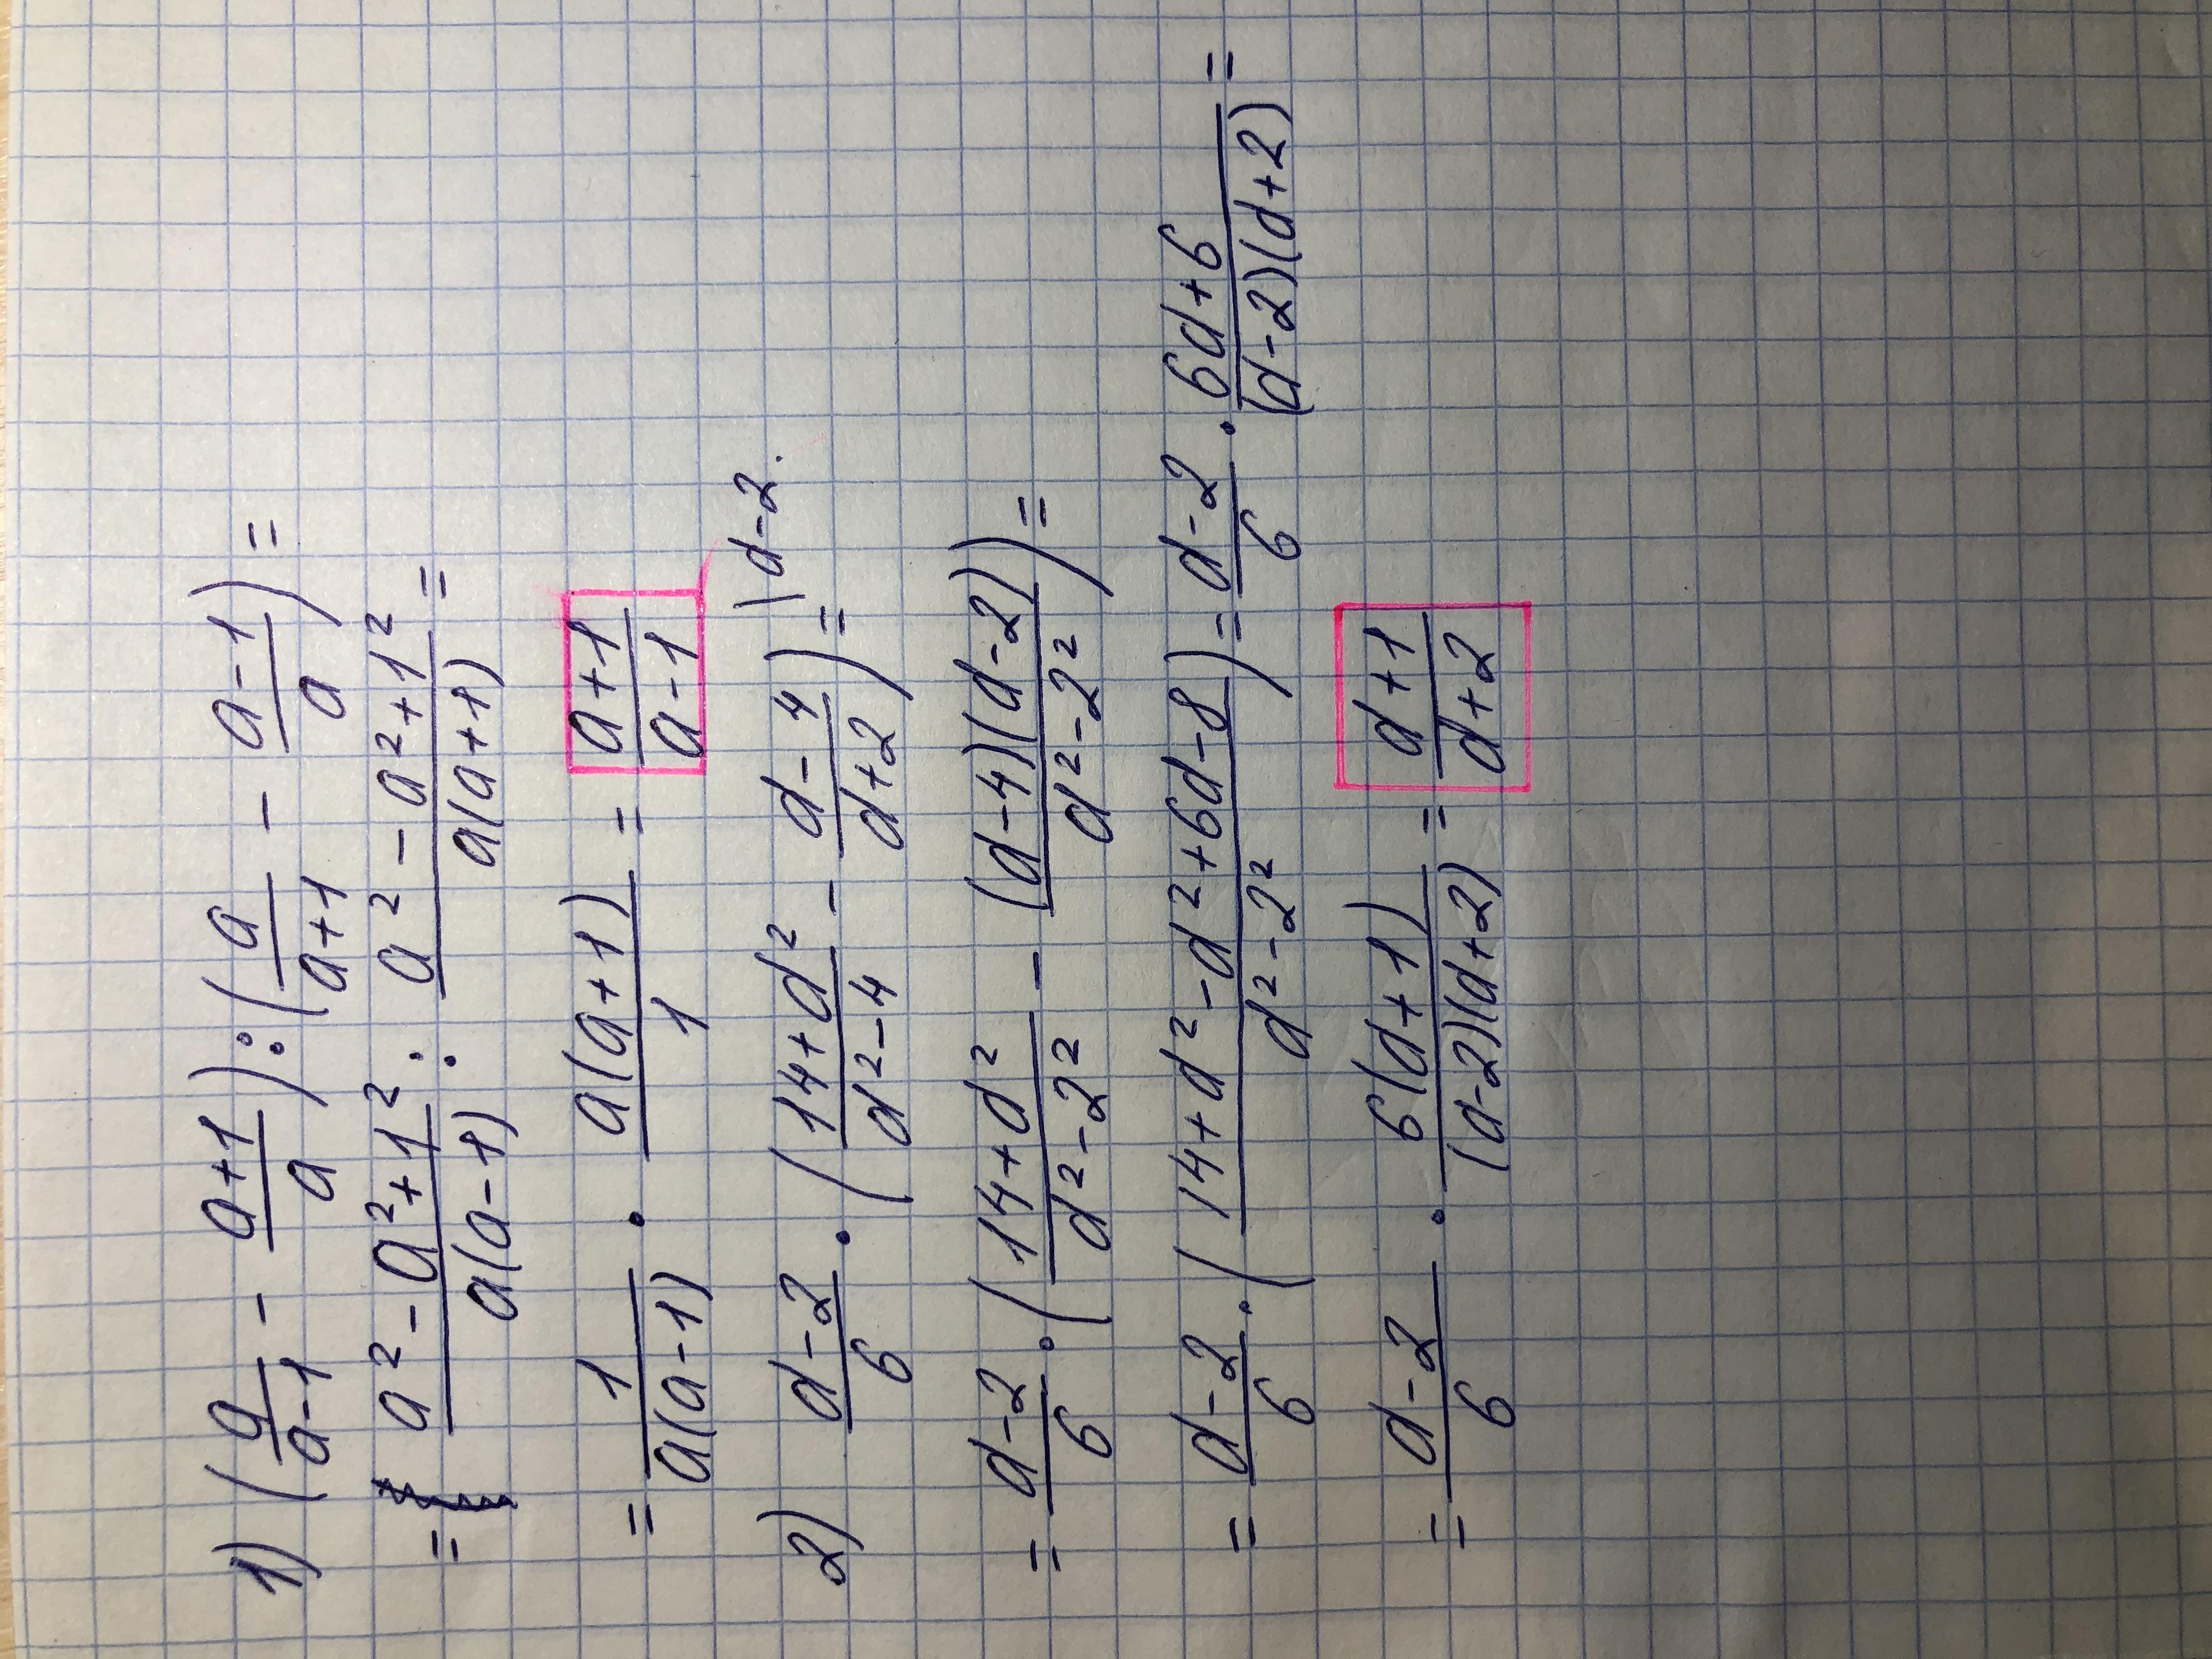 1) (a/(a-1) - (a+1)/a) : (a/(a+1) - (a-1)/a) =
= (a² - a² + 1²)/(a(a-1)) : (a² - a² + 1²)/(a(a+1)) =
= 1/(a(a-1)) · (a(a+1))/1 = (a+1)/(a-1)
2) (d-2)/6 · ((14+d²)/(d²-4) - (d-4)/(d+2)) = \d-2.
= (d-2)/6 · ((14+d²)/(d²-2²) - ((d-4)(d-2))/(d²-2²)) =
= (d-2)/6 · ((14+d²-d²+6d-8)/(d²-2²)) = (d-2)/6 · (6d+6)/((d-2)(d+2)) =
= (d-2)/6 · (6(d+1))/((d-2)(d+2)) = (d+1)/(d+2)